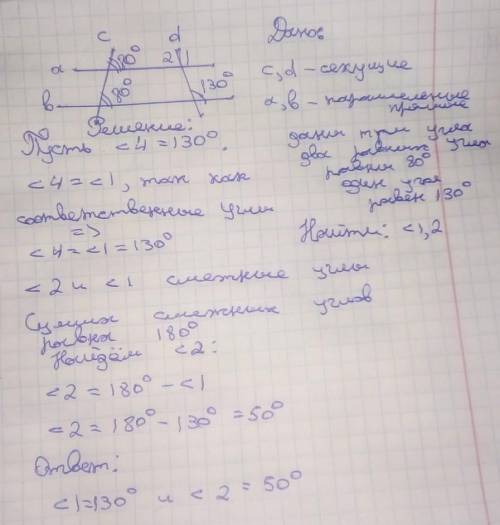 c d
a 80° 2 1
b 80° 130°
Дано:
c, d – секущие
a, b – параллельные
прямые
даны три угла
два равных угла
равны 80°
один угол
равен 130°
Найти: <1,2
Решение:
Пусть <4 = 130°.
<4 = <1, так как
соответственные углы
=>
<4 = <1 = 130°
<2 и <1 смежные углы
Сумма смежных углов
равна 180°
Найдём <2:
<2 = 180° - <1
<2 = 180° - 130° = 50°
Ответ:
<1 = 130° и <2 = 50°